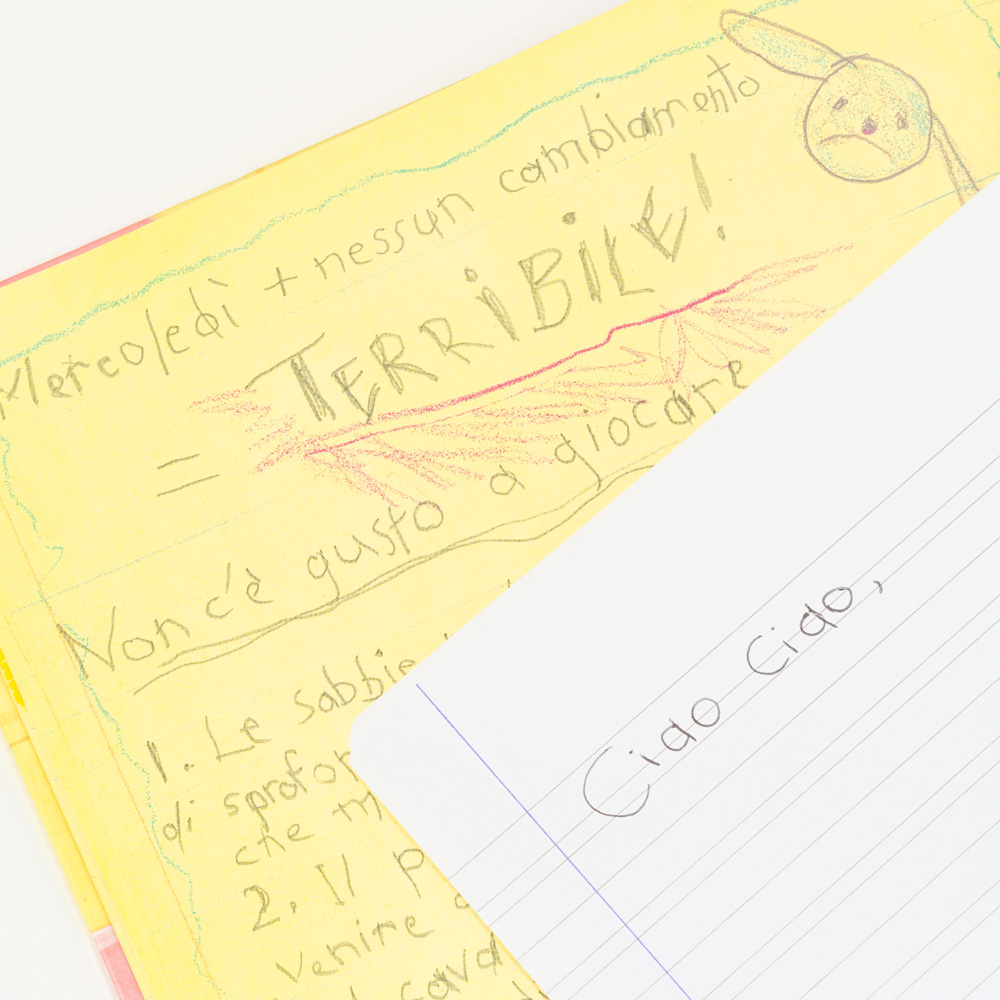 Mercoledì + nessun cambiamento
= TERRiBiLE!
Non c'è gusto a giocare
1. Le sabbie
di
che
2. Il
venire
Ciao Ciao,